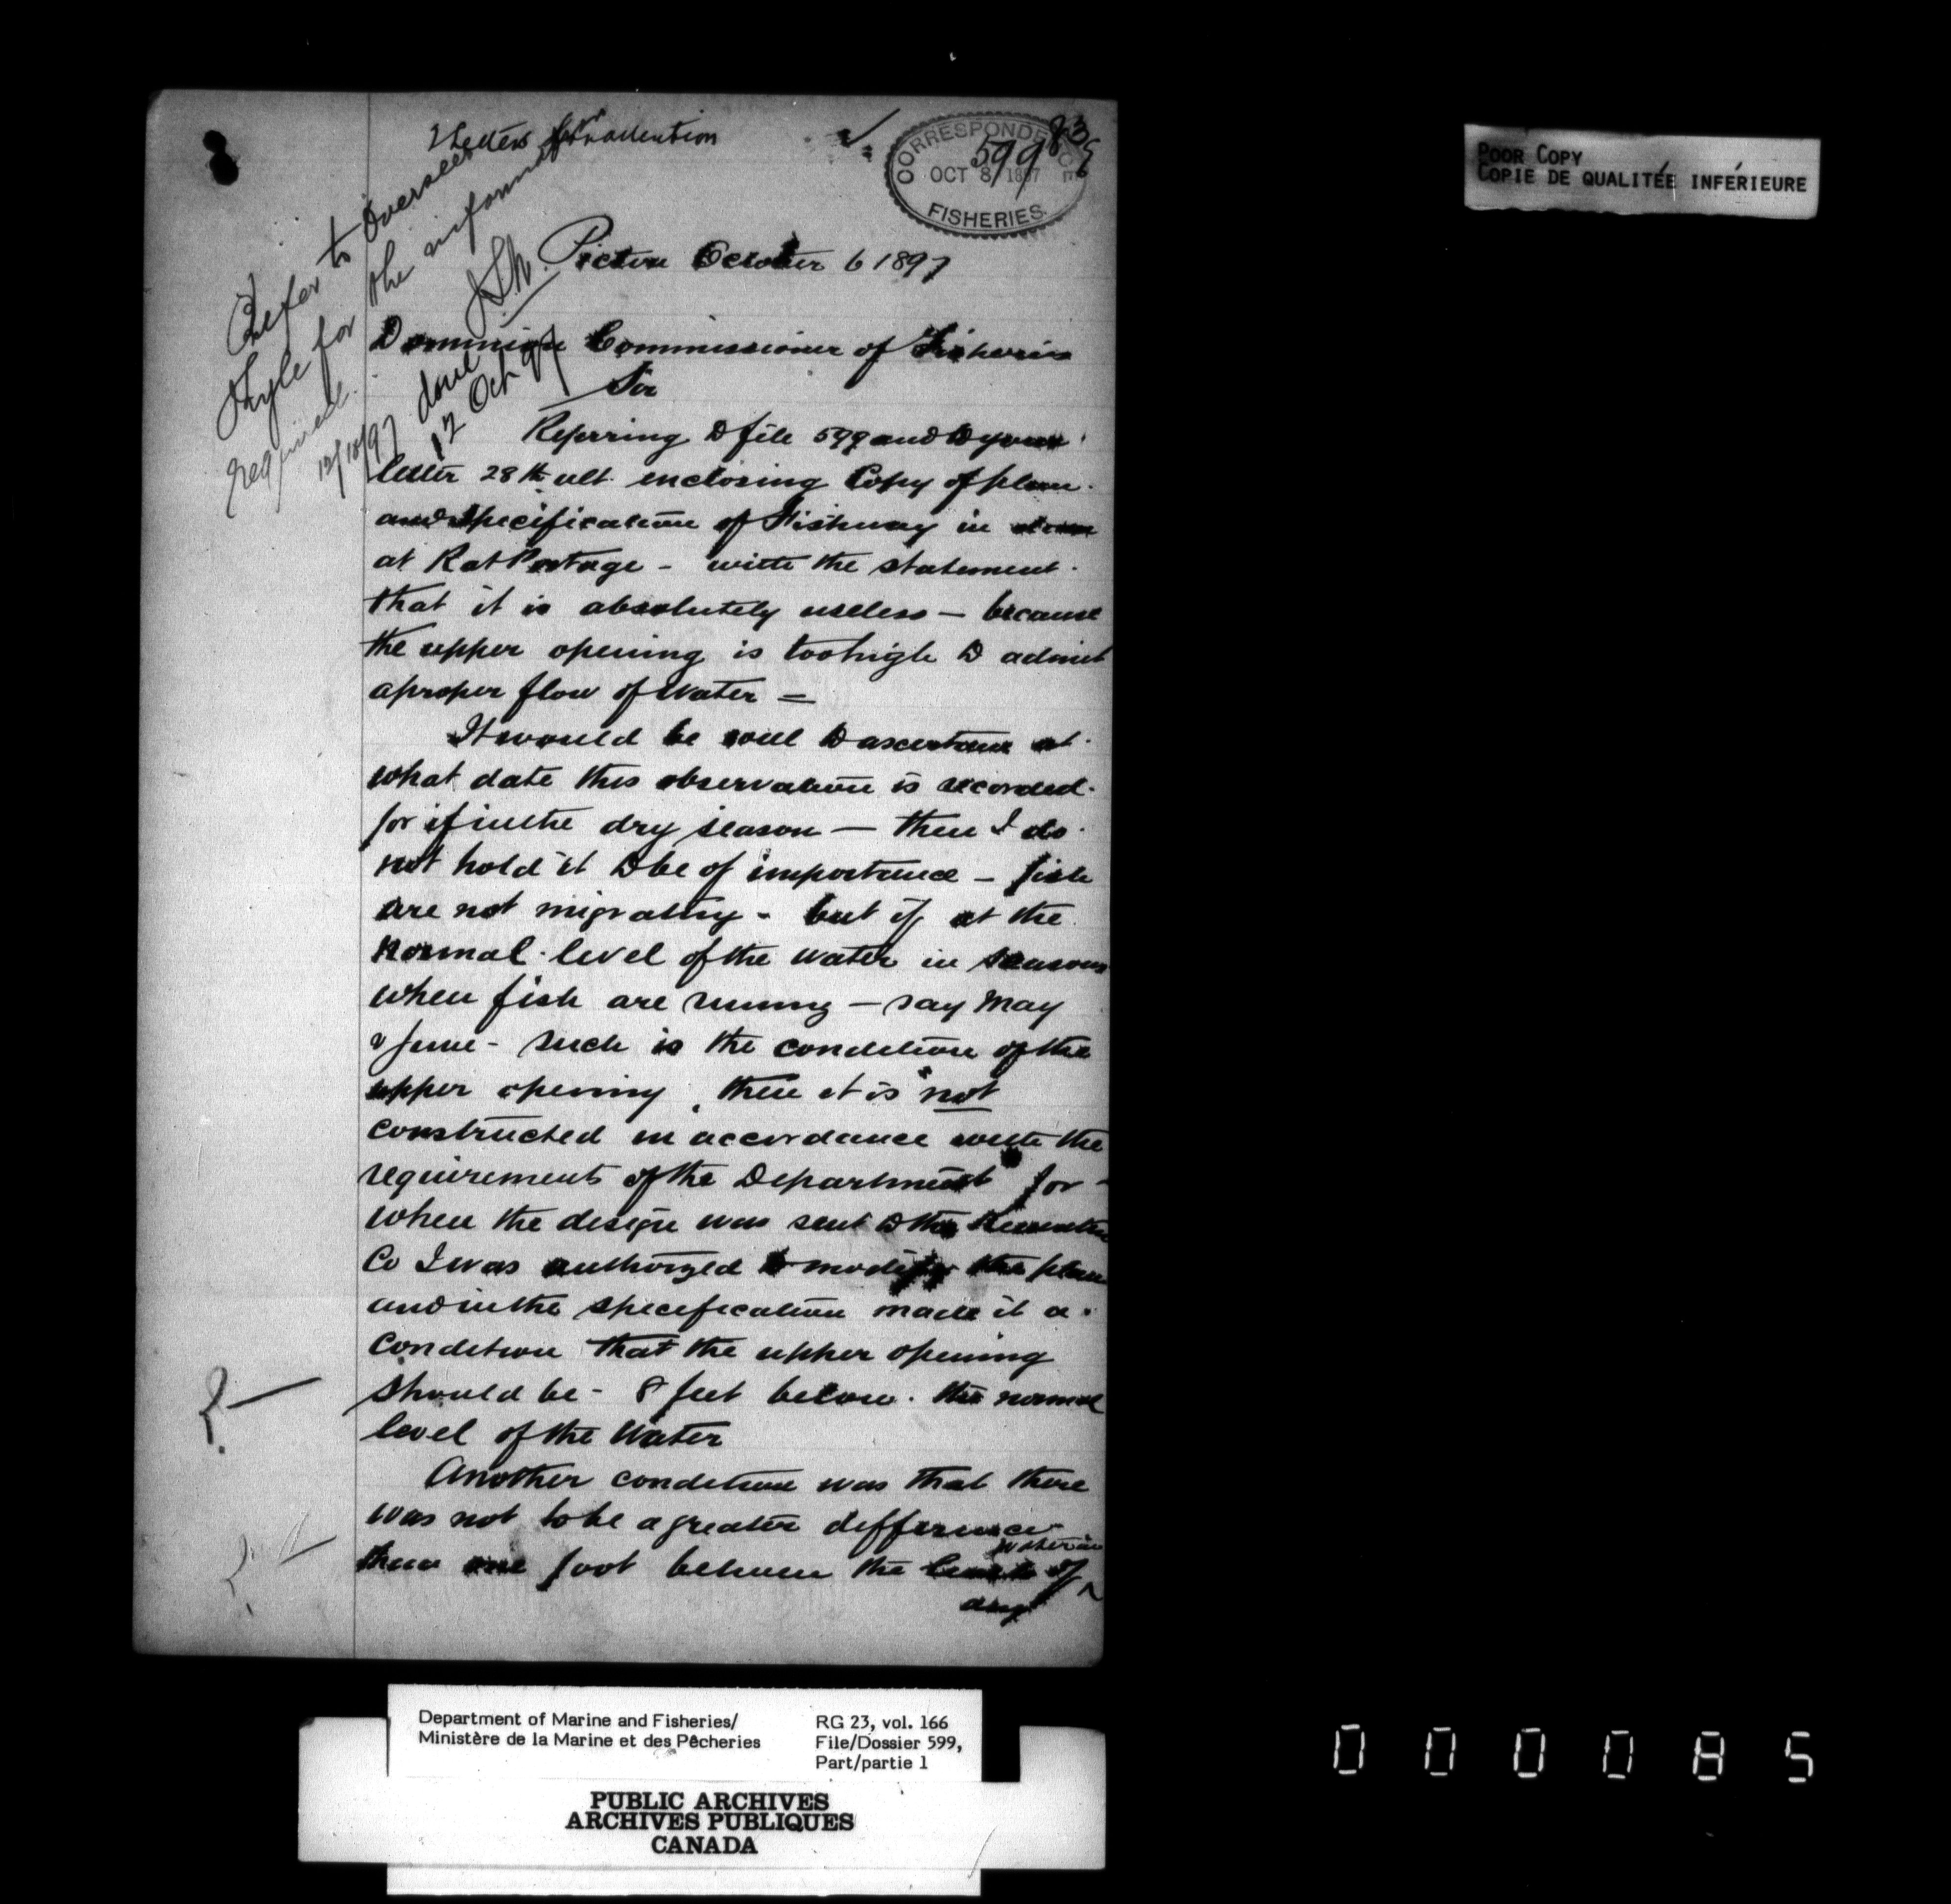 2 Letters for attention
CORRESPONDENCE
599 835
OCT 8 1897
FISHERIES
Refer to Overseer
Kyle for the information
required.
12/10/97
done
12 Oct 97
Pictou October 6 1897
Dominion Commissioner of Fisheries
Sir
Referring to file 599 and to your
letter 28th ult. enclosing Copy of plan
and specification of Fishway in dam
at Rat Portage - with the statement
that it is absolutely useless - because
the upper opening is too high to admit
a proper flow of Water =
It would be well to ascertain at
what date this observation is recorded
for if in the dry season - then I do
not hold it to be of importance - fish
are not migrating - but if at the
normal level of the water in seasons
when fish are running - say May
& June - such is the condition of the
upper opening, then it is "not
constructed in accordance with the
requirements of the Department for
when the design was sent to the
Co I was authorized to modify the plan
and in the specification made it a
condition that the upper opening
should be - 8 feet below. the normal
level of the Water
Another condition was that there
was not to be a greater difference
than one foot between the levels of
water in
any
POOR COPY
COPIE DE QUALITÉE INFÉRIEURE
Department of Marine and Fisheries/
Ministère de la Marine et des Pêcheries
RG 23, vol. 166
File/Dossier 599,
Part/partie 1
PUBLIC ARCHIVES
ARCHIVES PUBLIQUES
CANADA
000085